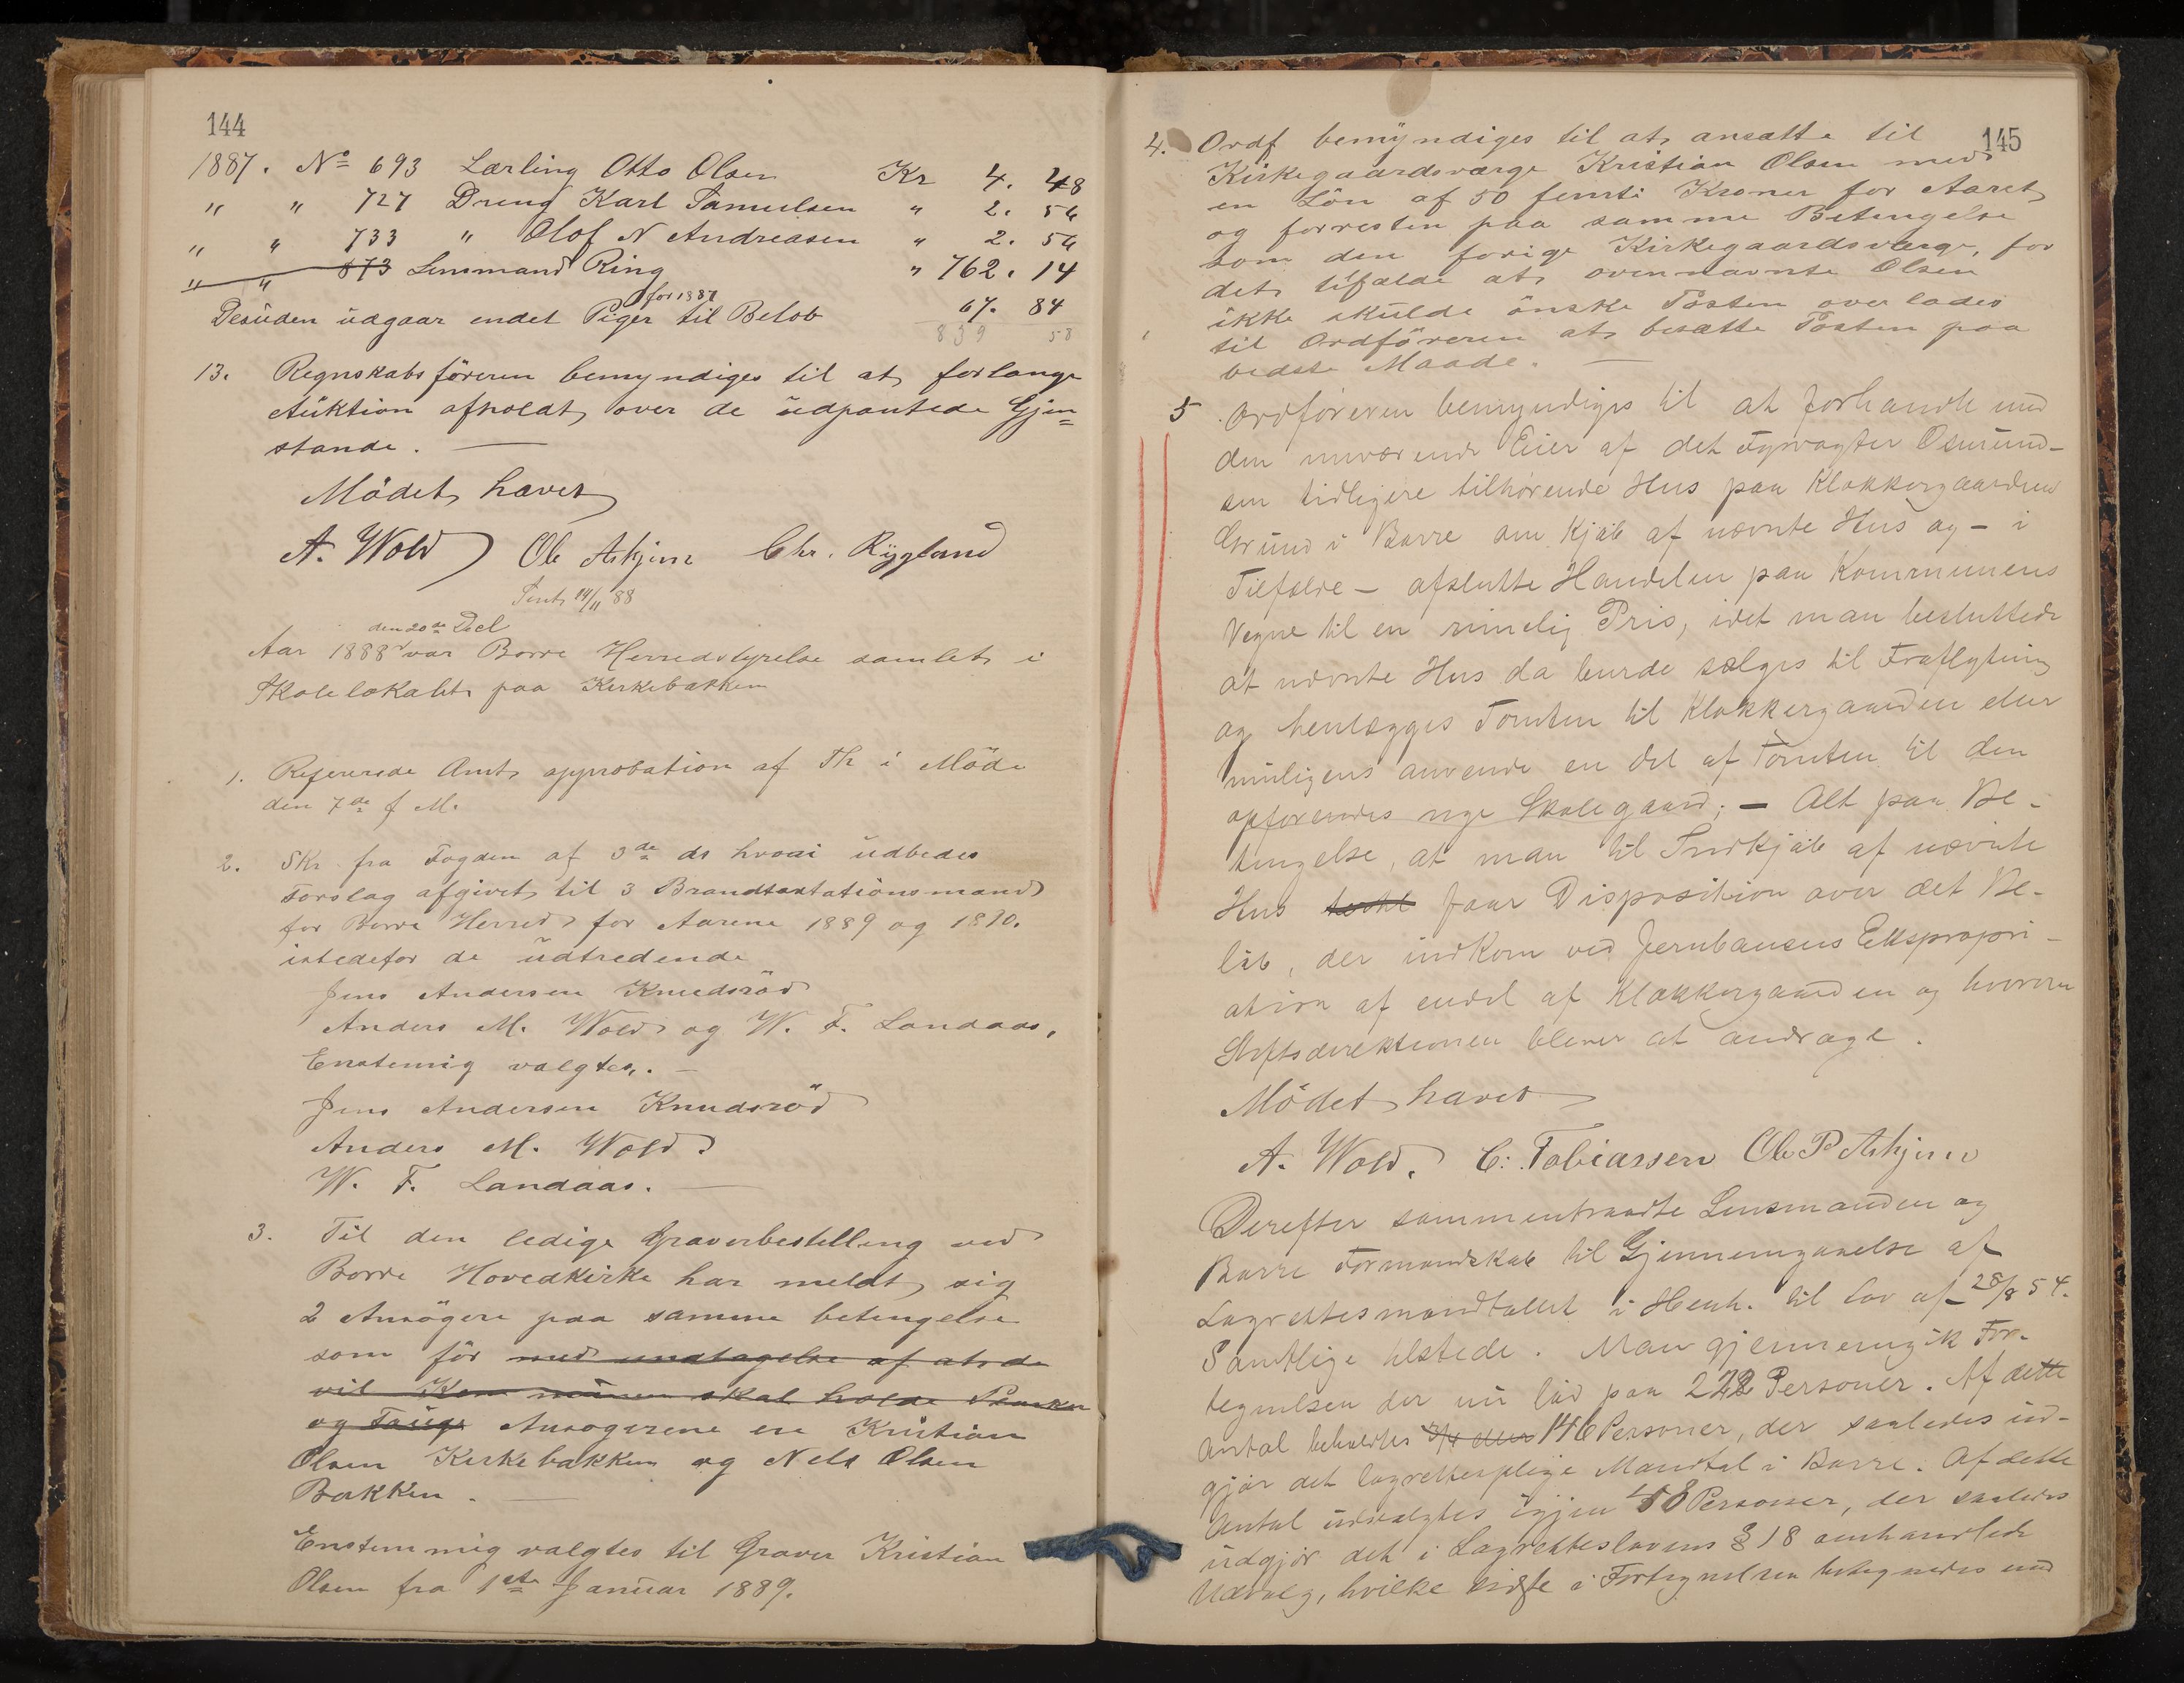 144
1887. No 693 Lærling Otto Olsen Kr 4. 48
" " 727 Dreng Karl Samuelsen " 2. 56
" " 733 " Olof N Andreasen " 2. 56
" " 873 Lensmand Ring " 762. 14
for 1887
Desuden udgaar endel Piger til Beløb 67. 84
839 58
13. Regnskabsføreren bemyndiges til at forlange
Auktion afholdt over de udpantede Gjen=
stande. —
Mødet hævet
A. Wold Ole Askjem Chr. Rygland
Sent 14/11 88
den 20de Dec
Aar 1888 var Borre Herredstyrelse samlet i
Skolelokalet paa Kirkebakken
1. Refererede Amts approbation af Th i Møde
den 7de f M.
2. Skr fra Fogden af 3de ds hvori udbedes
Forslag afgivet til 3 Brandtaxtationsmænd
for Borre Herred for Aarene 1889 og 1890.
istedefor de udtredende
Jens Andersen Knudsrød
Anders M. Wold og W. F. Landaas.
Enstemig valgtes. —
Jens Andersen Knudsrød
Anders M. Wold
W. F. Landaas. —
3. Til den ledige Graverbestilling ved
Borre Hovedkirke har meldt sig
2 Ansøgere paa samme betingelse
som før med undtagelse af at de
vil Kommunen skal holde Planker
og Tauge Ansøgerene er Kristian
Olsen Kirkebakken og Nels Olsen
Bakken. —
Enstemmig valgtes til Graver Kristian
Olsen fra 1ste Januar 1889.
145
4. Ordf bemyndiges til at ansætte til
Kirkegaardsværge Kristian Olsen med
en Løn af 50 femti Kroner for Aaret
og forresten paa samme Betingelse
som den forige Kirkegaardsværge, for
det tilfælde at ovennævnte Olsen
ikke skulde ønske Posten overlades
til Ordføreren at besætte Posten paa
bedste Maade. —
5. Ordføreren bemyndiges til at forhandle med
den nuværende Eier af det Fyrvogter Osmund-
sen tidligere tilhørende Hus paa Klokkergaardens
Grund i Borre om Kjøb af nævnte Hus og – i
Tilfælde – afslutte Handelen paa Kommunens
Vegne til en rimelig Pris, idet man besluttede
at nævnte Hus da burde sælges til Fraflytning
og henlægges Tomten til Klokkergaarden eller
muligens anvende en del af Tomten til den
opførendes nye Skolegaard; – Alt paa Be-
tingelse, at man til Indkjøb af nævnte
Hus faar Disposition over det Be-
løb, der indkom ved Jernbanens Ekspropri-
ation af endel af Klokkergaarden og hvorom
Stiftsdirektionen bliver at andrage.
Mødet hævet
A. Wold. C. Tobiassen Ole P Askjem
Derefter sammentraadte Lensmanden og
Borre Formandskab til Gjennemgaaelse af
Lagrettesmandtallet i Henh. til Lov af 28/8 54.
Samtlige tilstede. Man gjennemgik For-
tegnelsen der nu lød paa 222 Personer. Af dette
Antal beholdtes 3/4 eller 146 Personer, der saaledes ud-
gjør det lagrettespligtige Mandtal i Borre. Af dette
Antal udvalgtes igjen 48 Personer, der saaledes
udgjør det i Lagretteslovens § 18 omhandlede
Udvalg, hvilke sidste i Fortegnelsen betegnedes med